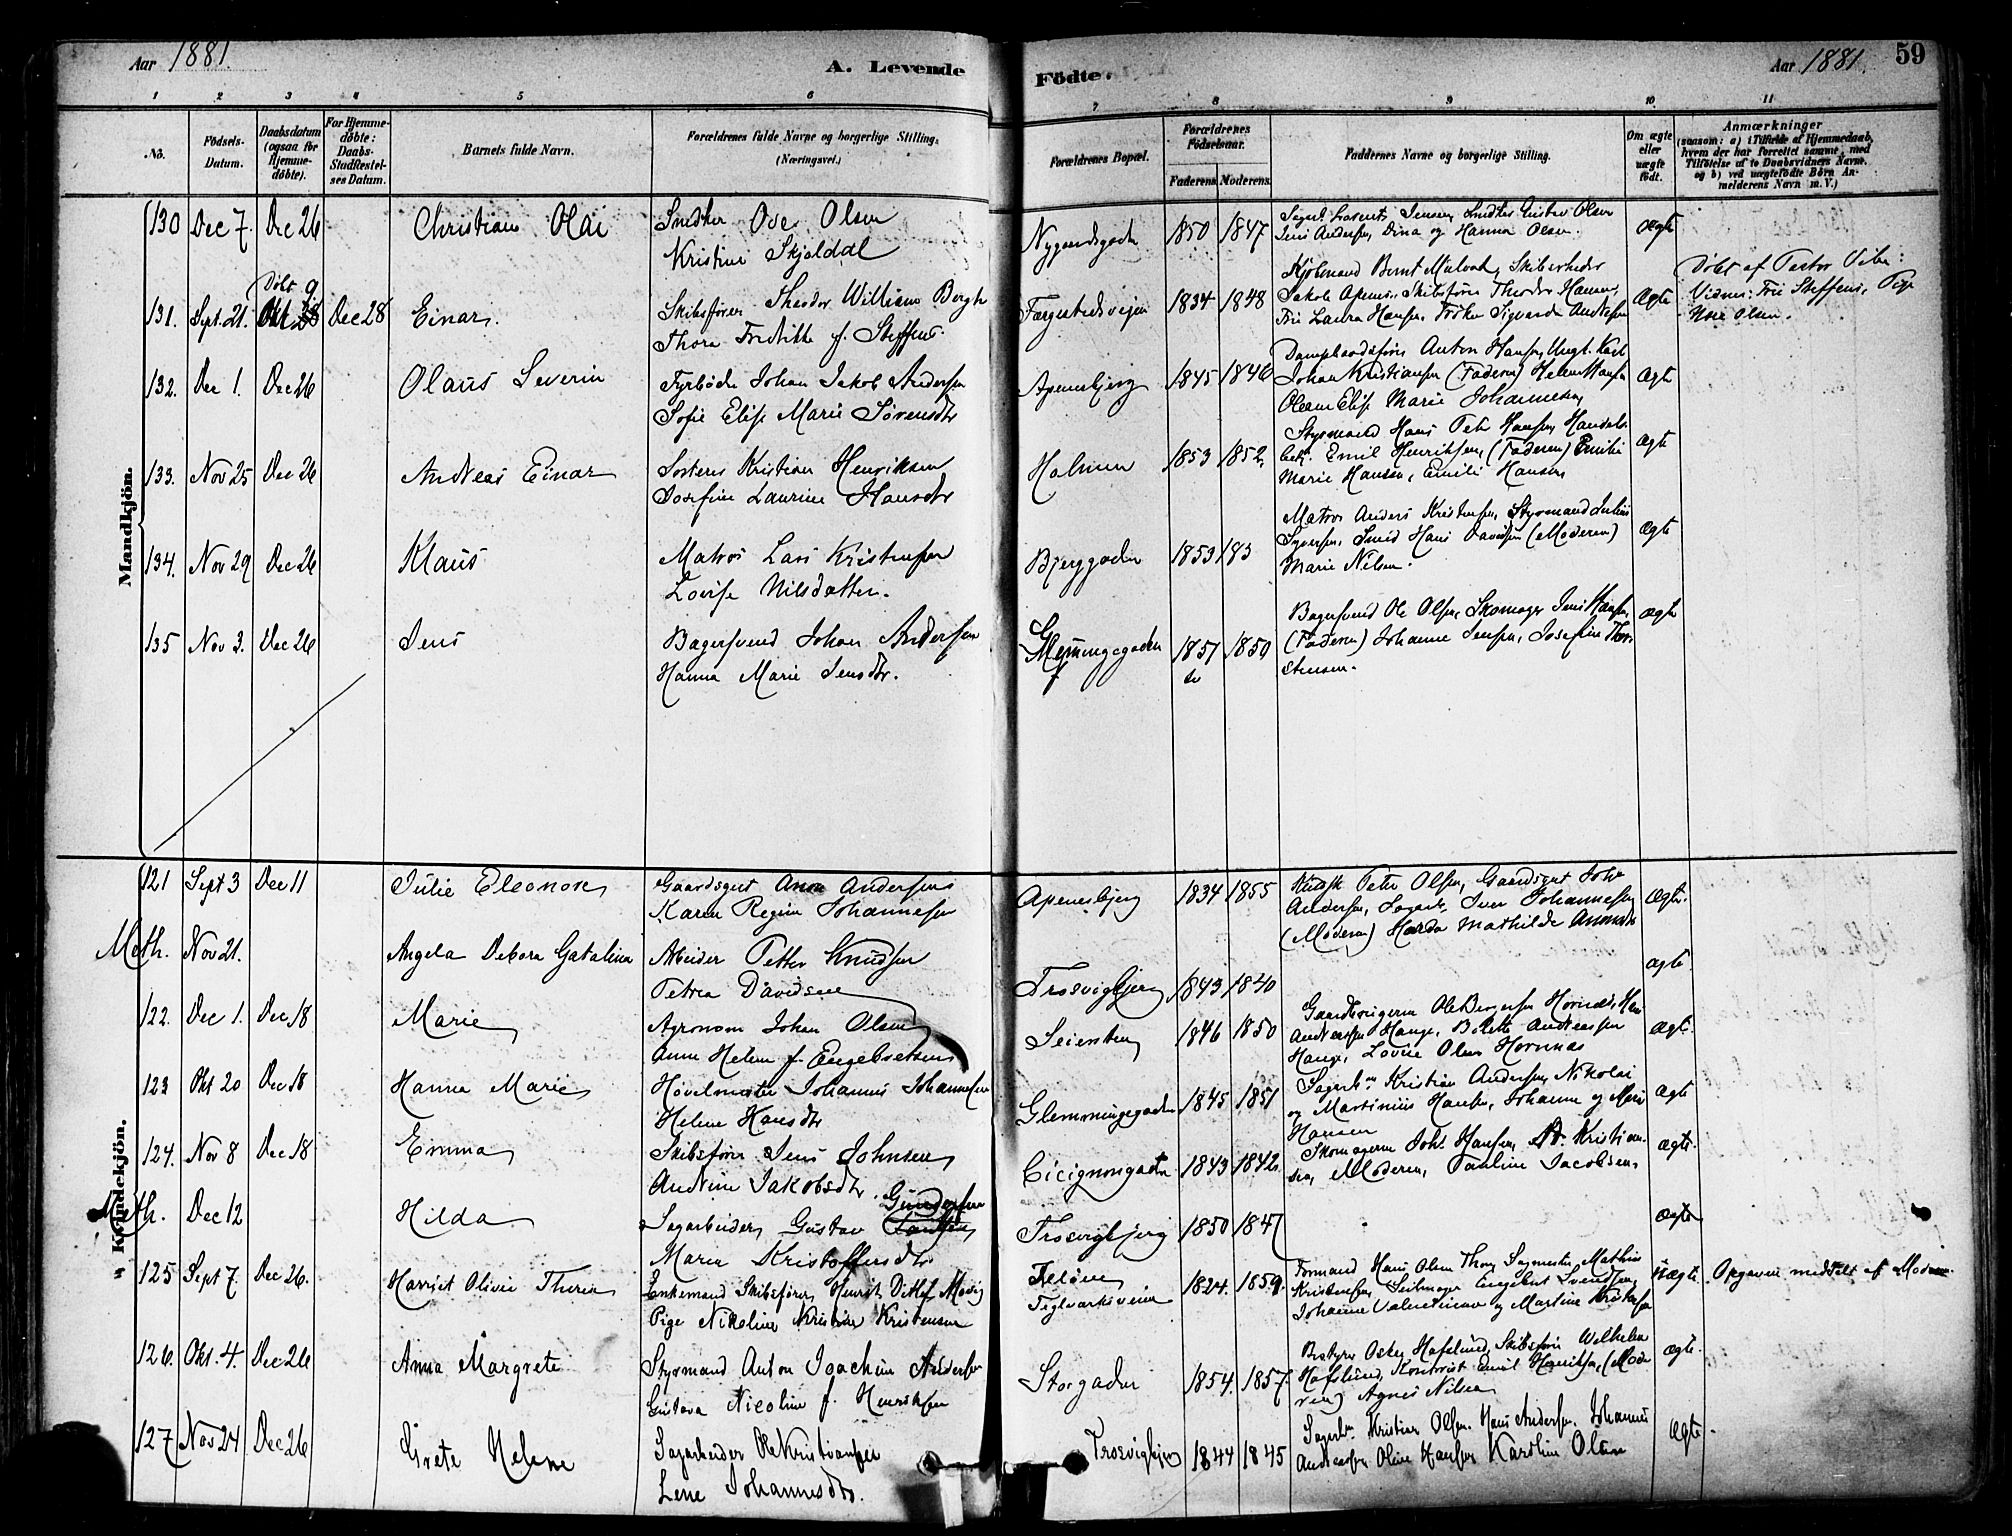 Aar 1881.
A. Levende
Födte.
Aar 1881.
59
1 2 3 4 5 6 7 8 9 10 11
No.
Födsels-
Datum.
Daabsdatum
(ogsaa for
Hjemme-
döbte).
For Hjemme-
döbte:
Daabs-
Stadfæstel-
ses Datum.
Barnets fulde Navn.
Forældrenes fulde Navne og borgerlige Stilling.
(Næringsvei.)
Forældrenes Bopæl.
Forældrenes
Födselsaar.
Faderens. Moderens.
Faddernes Navne og borgerlige Stilling.
Om ægte
eller
uægte
födt.
Anmærkninger
(saasom: a) i Tilfælde af Hjemmedaab,
hvem der har forrettet samme, med
Tilföielse af to Daabsvidners Navne,
og b) ved uægtefödte Börn An-
melderens Navn m. V.)
Mandkjön.
130 Dec 7. Dec 26 Christian Olai Snedker Ove Olsen
Kristine Skjoldal
Nygaardsgaden 1850 1847
Jens Andersen, Dina og Hanna Olsen.
Ægte
131. Sept. 21. Döbt 9 Okt Dec 28 Einar. Skibsfører Theodor William Bergh
Thora Fredrikke f. Steffens.
Færgestedsveien 1834 1848
Jakob Apenes, Skibsfører Theodor Hansen,
Ægte
Døbt af Pastor Vibe:
Vidner: Fru Steffens, Pige
Olsen.
132. Dec 1. Dec 26 Olaus Severin Fyrbøder Johan Jakob Andersen
Sofie Elise Marie Sørensdtr
Apenesbjerg 1845 1846
Dampbaadsfører Anton Hansen, Ungk. Karl
Johan Kristiansen (Faderen) Helene Hansen
Oleane Elise Marie Johannesen
Ægte
133. Nov 25 Dec 26 Andreas Einar Kristian Henriksen
Josefine Laurine Hansdtr
Holmen 1853 1852.
Styrmand Hans Petr Hansen, Handels-
betj. Emil Henriksen, (Faderen) Emilie
Marie Hansen, Emilie Hansen
Ægte
134. Nov 29 Dec 26 Klaus Matros Lars Kristensen
Lovise Nilsdatter.
Bjerggaden 1853 183
Matros Anders Kristensen, Styrmand Julius
Syversen, Smed Hans Davidsen (Moderen)
Marie Nilsen.
Ægte
135 Nov 3. Dec 26 Jens Bagersvend Johan Andersen
Hanna Marie Jensdtr.
Glemmingegaden 1851 1850
Bagersvend Ole Olsen, Skomager Jens Hansen,
(Faderen) Johanne Jensen, Josefine Thor-
stensen.
Ægte
Kvindekjön.
121 Sept 3 Dec 11 Julie Eleonore Gaardsgut Anon Andersen
Karen Regine Johannesen
Apenesbjerg 1834 1855
Petr Olsen, Gaardsgut Johs
Andersen, Iver Johannesen
(Moderen) Mathilde
Ægte.
Meth. Nov 21. Angela Debora Gatalina Arbeider Petter Knudsen
Petrea Davidsen
Trosvigbjerg 1843 1840 Ægte.
122. Dec 1. Dec 18 Marie Agronom Johan Olsen
Anne Helene f. Engebretsen
Seiersten 1846 1850
Hauge, Lovise Olsen Hornnæs
Ægte.
123 Okt 20 Dec 18 Hanna Marie Høvelmester Johannes Johannesen
Helene Hansdtr
Glemmingegaden 1845 1851
Sagarb. Kristian Andersen, Nikolai
og Martinius Hansen, Johanne og Marie
Hansen
Ægte
124. Nov 8 Dec 18 Emma Skibsfører Jens Johnsen
Andrine Jakobsdtr.
Cicignongaden 1843 1842.
Skomagerne Joh. Hansen, Kristian-
sen, Moderen, Pauline Jacobsen
Ægte.
Meth. Dec 12 Hilda Sagarbeider Gustav Gundersen
Maren Kristoffersdtr
Trosvigbjerg 1850 1847 Ægte
125 Sept 7. Dec 26. Harriet Olivie Therese Enkemand Skibsfører Henrik Ditlef
Pige Nikoline Kristine Kristensen
Teglværksveien 1824. 1859.
Formand Hans Olsen
Kristensen, Seilmager Engebret Svendsen,
Johanne Valentinsen og Martine Kristensen
Uægte. Opgaven meddelt af Moderen
126. Okt. 4. Dec 26 Anna Margrete Styrmand Anton Joachim Andersen
Gustava Nicoline f. Henriksen
Storgaden 1854. 1857.
Bestyrer Oskar Hafslund, Skibsfører Wilhelm
Hafslund, Kontorist Emil Henriksen, (Mode-
ren) Agnes Nilsen
Ægte.
127 Nov 24 Dec 26 Grete Helene Sagarbeider Ole Kristiansen
Lene Johannesdtr.
Trosvigbjerg 1844 1845
Sagarb. Kristian Olsen, Hans Andersen, Johannes
Andreassen, Oline Hansen, Karoline Olsen
Ægte.